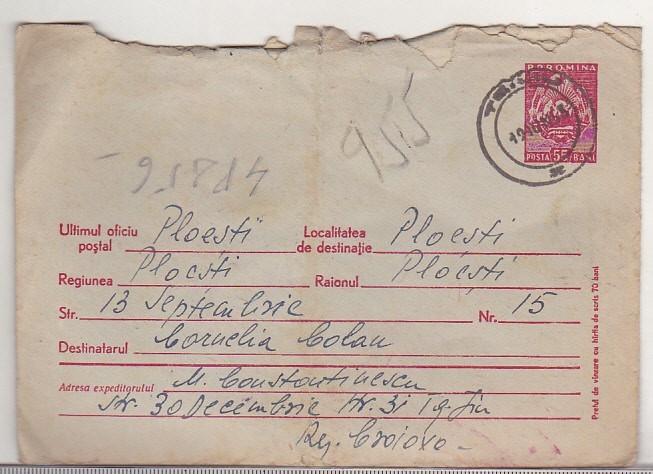 R.P.ROMINA
POSTA 55 BANI
955
Ultimul oficiu poștal Ploesti Localitatea de destinație Ploesti
Regiunea Ploesti Raionul Ploesti
Str. 13 Septembrie Nr. 15
Destinatarul Cornelia Colan
Adresa expeditorului M. Constantinescu
Str. 30 Decembrie Nr. 31 Tg. Jiu
Reg. Craiova
Prețul de vînzare cu hîrtia de scris 70 bani